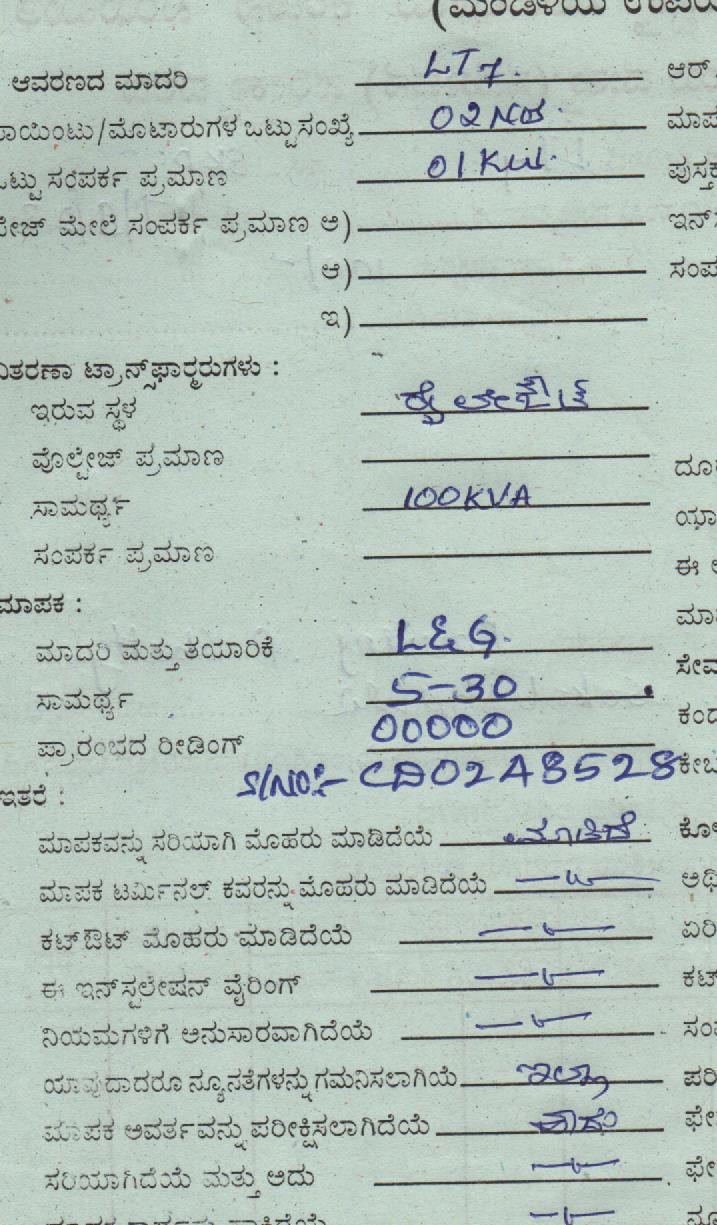 (ಮಂಡಳಿಯ
ಆವರಣದ ಮಾದರಿ LT7. ಆರ್
ಾಯಿಂಟು/ಮೊಟಾರುಗಳ ಒಟ್ಟು ಸಂಖ್ಯೆ 02 Nos. ಮಾಪ
ಒಟ್ಟು ಸಂಪರ್ಕ ಪ್ರಮಾಣ 01 KW. ಪುಸ್ತಕ
ೇಜ್ ಮೇಲೆ ಸಂಪರ್ಕ ಪ್ರಮಾಣ ಅ) ಇನ್‌
ಆ) ಸಂಪ
ಇ)
ವಿತರಣಾ ಟ್ರಾನ್ಸ್‌ಫಾರ್ಮರುಗಳು :
ಇರುವ ಸ್ಥಳ
ವೊಲ್ಟೇಜ್ ಪ್ರಮಾಣ ದೂರ
ಸಾಮರ್ಥ್ಯ 100KVA ಯಾ
ಸಂಪರ್ಕ ಪ್ರಮಾಣ ಈ
ಮಾಪಕ :
ಮಾದರಿ ಮತ್ತು ತಯಾರಿಕೆ L&G. ಮಾ
ಸಾಮರ್ಥ್ಯ 5-30 ಸೇವ
ಪ್ರಾರಂಭದ ರೀಡಿಂಗ್ 00000 ಕಂದ
S/NO:- CD02A8528 ಕೇಬ
ಇತರೆ :
ಮಾಪಕವನ್ನು ಸರಿಯಾಗಿ ಮೊಹರು ಮಾಡಿದೆಯೆ ಮಾಡಿದೆ ಕೋ
ಮಾಪಕ ಟರ್ಮಿನಲ್ ಕವರನ್ನು ಮೊಹರು ಮಾಡಿದೆಯೆ —〃— ಅಥಿ
ಕಟ್‌ಔಟ್ ಮೊಹರು ಮಾಡಿದೆಯೆ —〃— ಏರಿ
ಈ ಇನ್‌ಸ್ಟಲೇಷನ್ ವೈರಿಂಗ್ —〃— ಕಟ್
ನಿಯಮಗಳಿಗೆ ಅನುಸಾರವಾಗಿದೆಯೆ —〃— ಸಂ
ಯಾವುದಾದರೂ ನ್ಯೂನತೆಗಳನ್ನು ಗಮನಿಸಲಾಗಿಯೆ ಇಲ್ಲ ಪರಿ
ಮಾಪಕ ಅವರ್ತವನ್ನು ಪರೀಕ್ಷಿಸಲಾಗಿದೆಯೆ ಹೌದು ಫೇ
ಸರಿಯಾಗಿದೆಯೆ ಮತ್ತು ಅದು —〃— ಫೇ